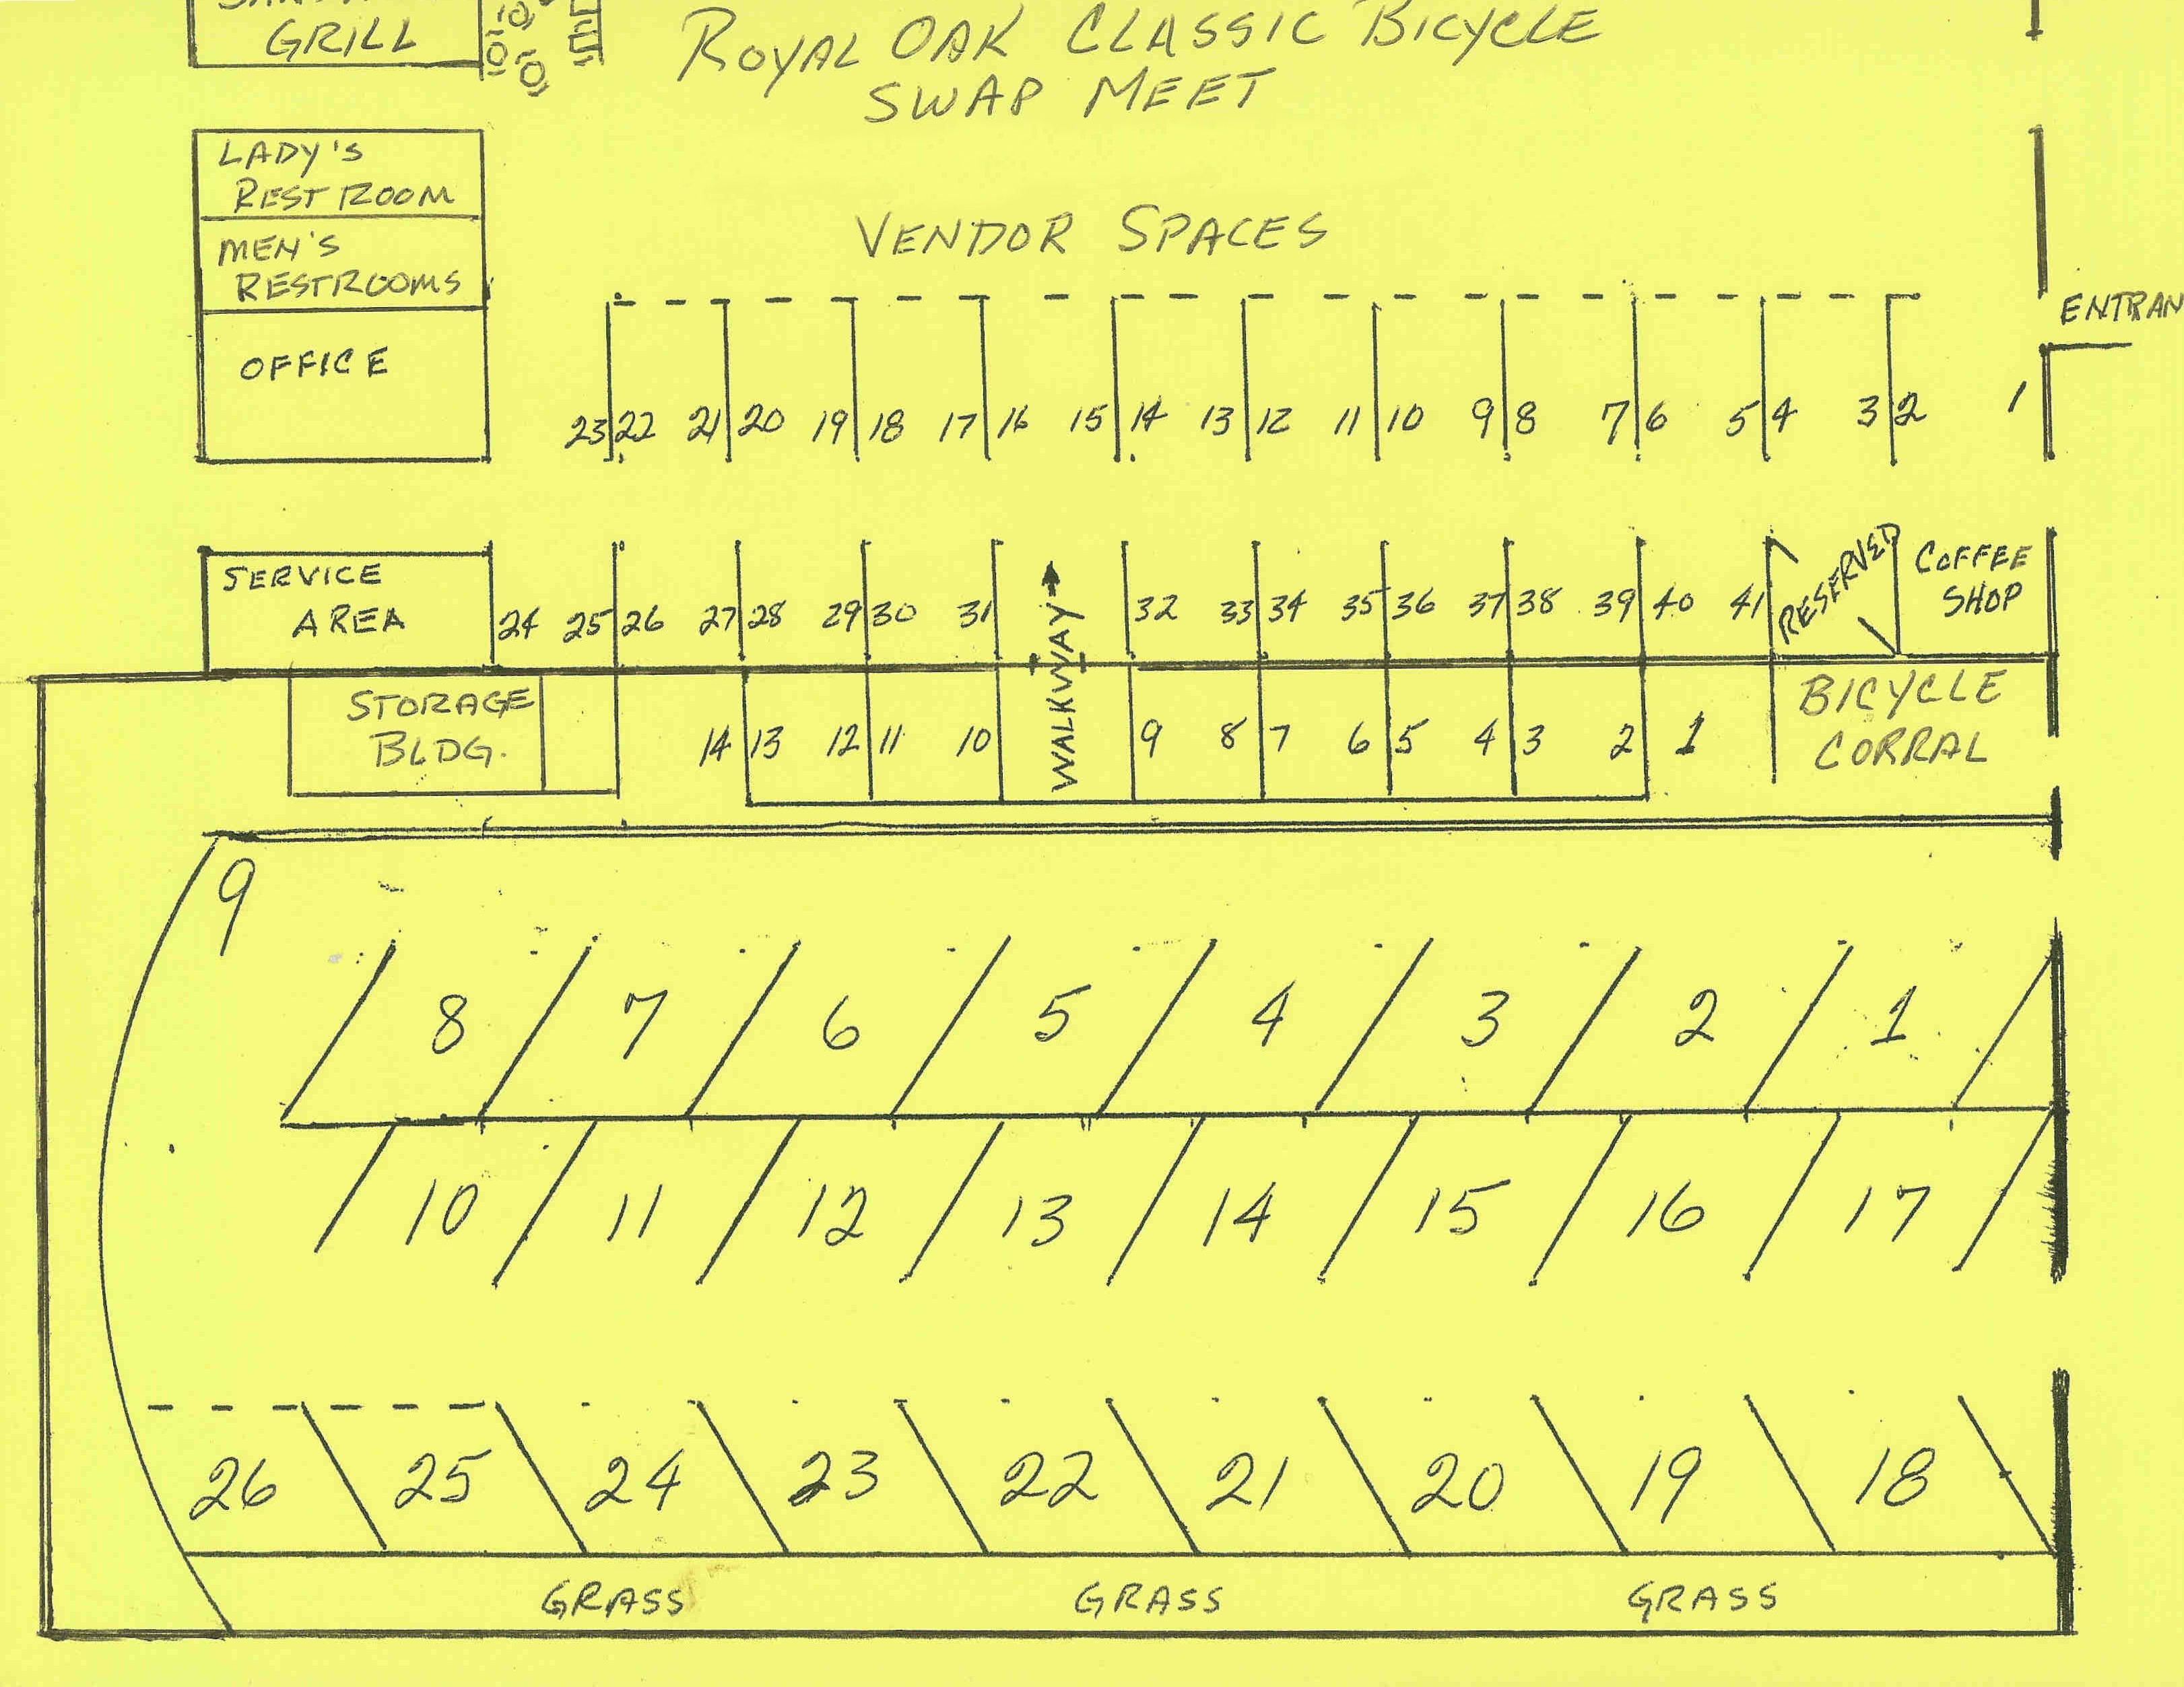 GRILL
ROYAL OAK CLASSIC BICYCLE
SWAP MEET
LADY'S
REST ROOM
MEN'S
RESTROOMS
OFFICE
VENDOR SPACES
ENTRAN
23 22 21 20 19 18 17 16 15 14 13 12 11 10 9 8 7 6 5 4 3 2 1
SERVICE
AREA
24 25 26 27 28 29 30 31
WALKWAY
32 33 34 35 36 37 38 39 40 41
RESERVED
COFFEE
SHOP
STORAGE
BLDG.
14 13 12 11 10
9 8 7 6 5 4 3 2 1
BICYCLE
CORRAL
9
8 7 6 5 4 3 2 1
10 11 12 13 14 15 16 17
26 25 24 23 22 21 20 19 18
GRASS GRASS GRASS